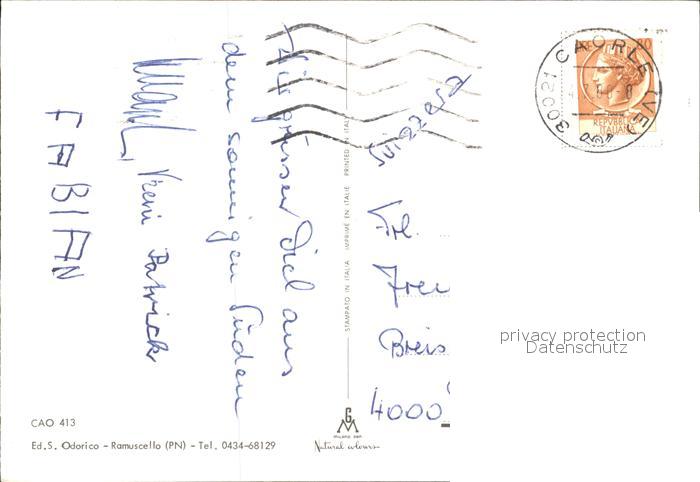 Wir grüssen Dich aus
dem sonnigen Süden
Vreni Patrick
FABIAN
Svizzera
Frl.
Breis
4000
30021 CAORLE (VE)
REPVBBLICA
ITALIANA
STAMPATO IN ITALIA IMPRIMÉ EN ITALIE PRINTED IN ITALY
privacy protection
Datenschutz
CAO 413
Ed. S. Odorico - Ramuscello (PN) - Tel. 0434-68129
G
M
Natural colours